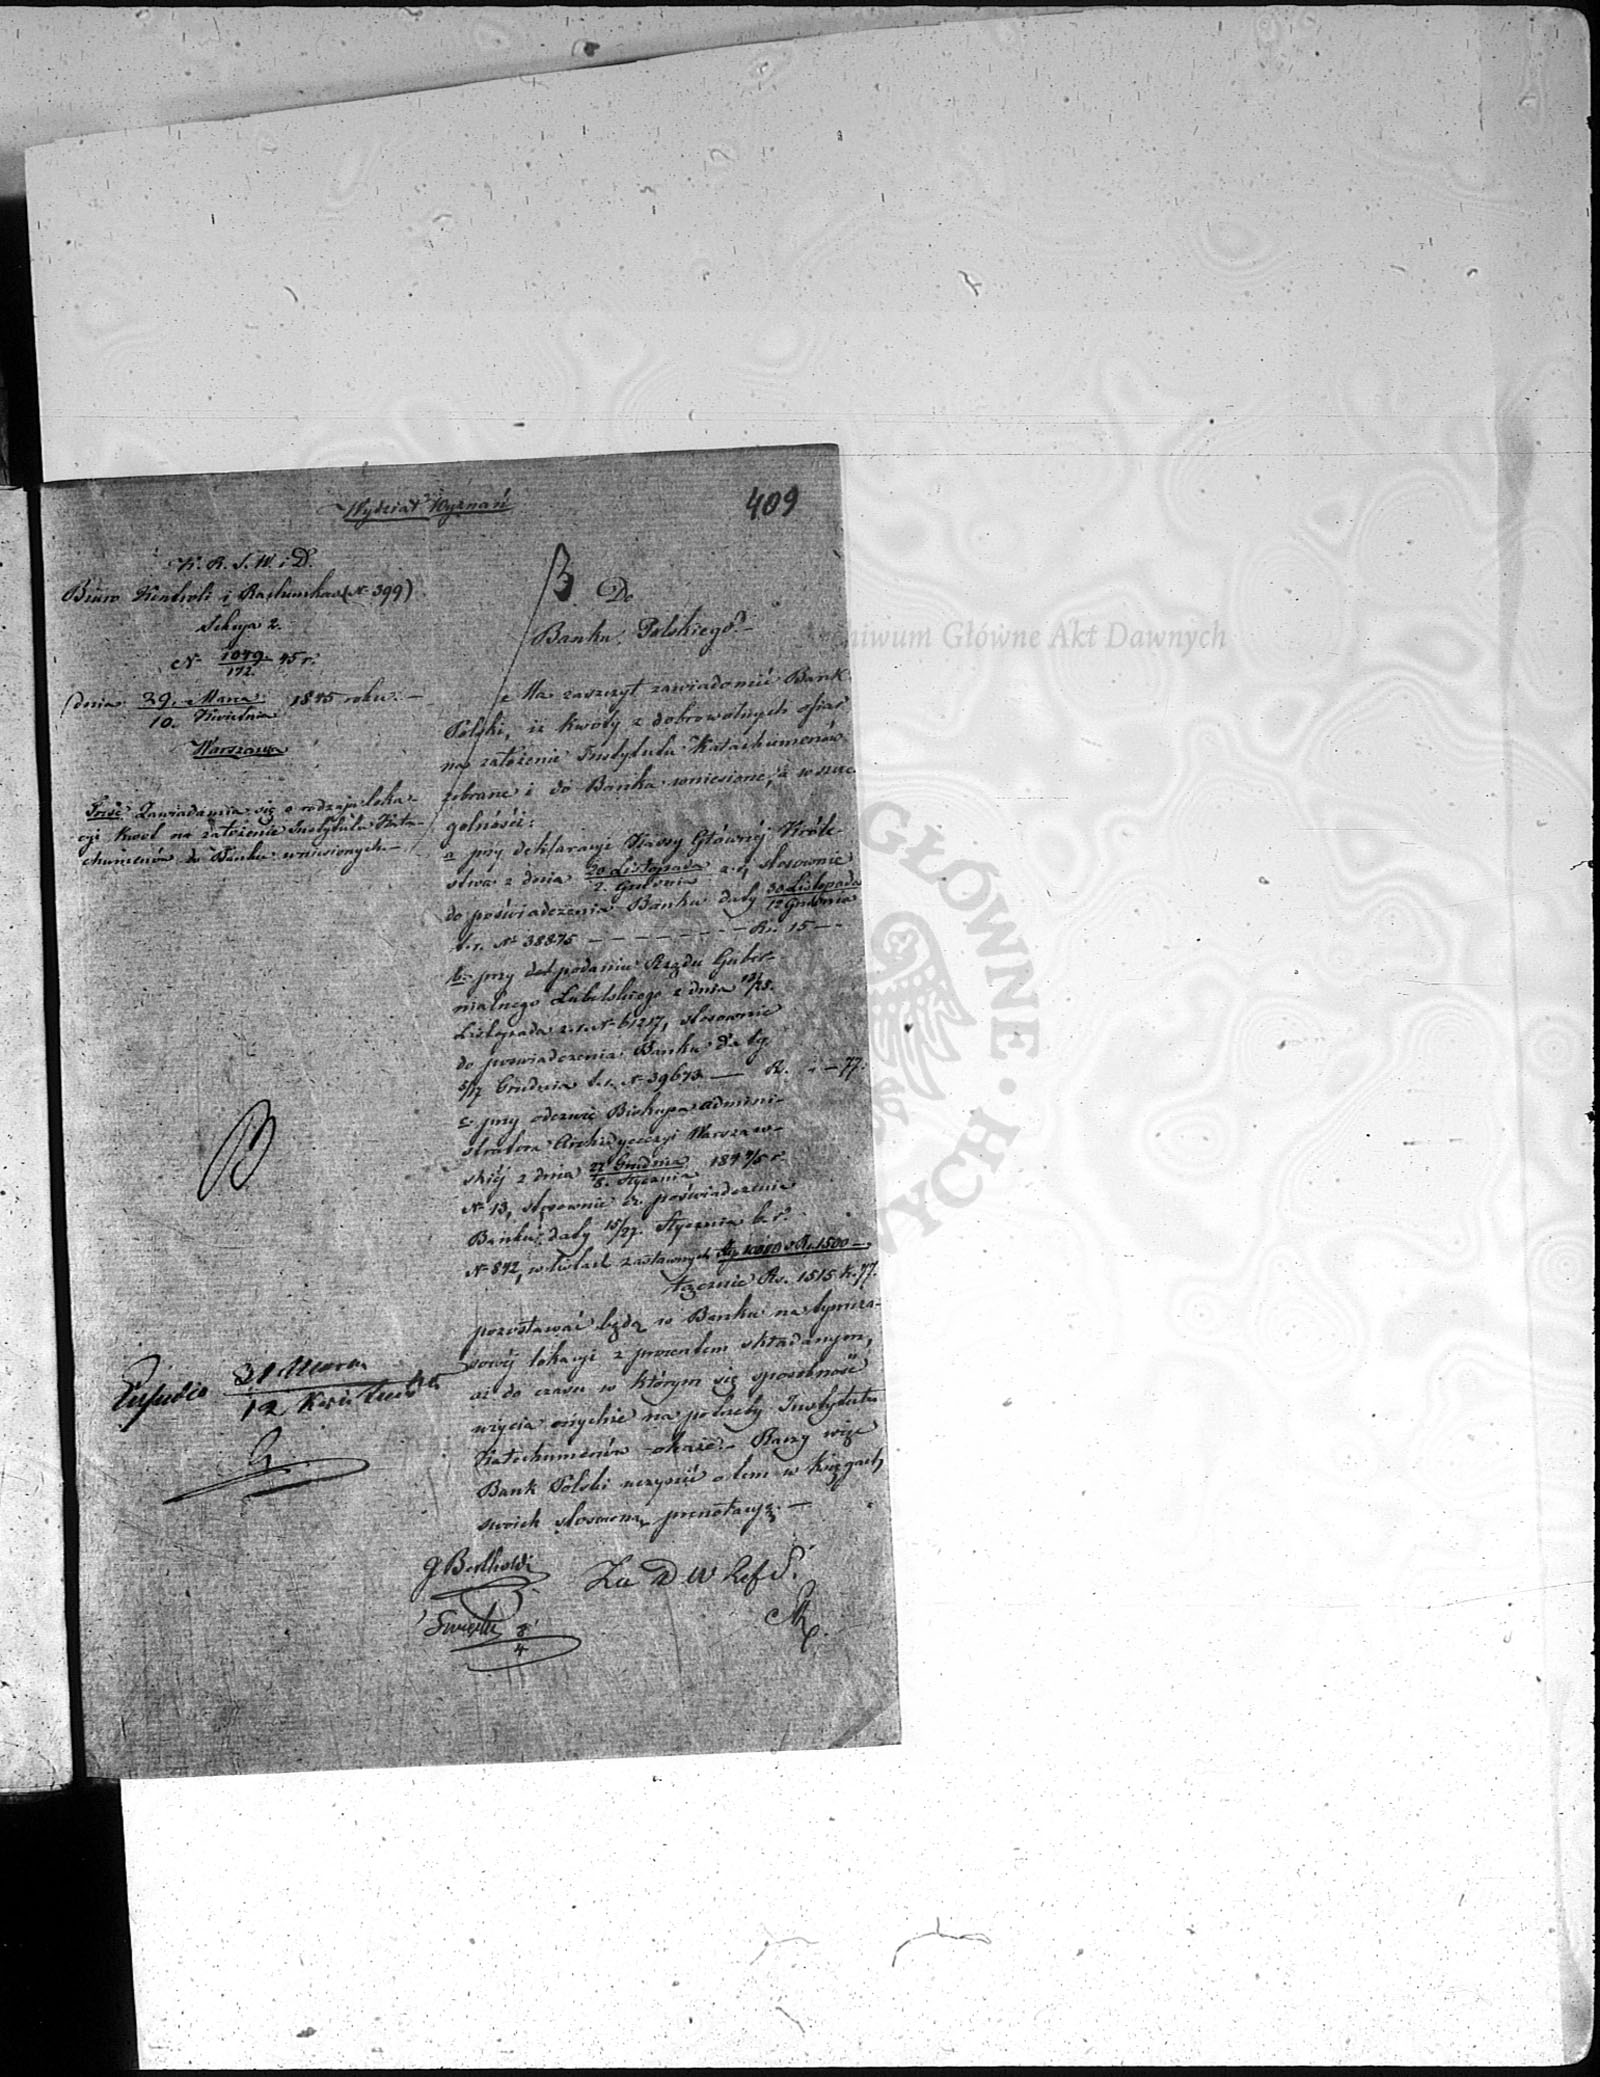 Wydział Wyznań
409
K. R. S. W. i D.
Biuro Kontroli i Rachunkow (N. 399)
Sekcya 2.
N. 1049/172. 45 r.
dnia 29. Marca / 10. Kwietnia 1845 roku. —
Warszawa
Treść Zawiadamia się o rodzaju loka-
cyi kwot na założenie Instytutu Kata-
chumenów do Banku wniesionych. —
Do
Banku Polskiego. —
Ma zaszczyt zawiadomić Bank
Polski, iż kwoty z dobrowolnych ofiar
na założenie Instytutu Katachumenów
zebrane i do Banku wniesione, a w szcze-
gólności:
a przy deklaracyi Kassy Głównéj Króle-
stwa z dnia 20 Listopada / 2. Grudnia z. r, stosownie
do poświadczenia Banku daty 30 Listopada / 12 Grudnia
t. r. N. 38875 — — — — — — — Rs. 15 — -
b. przy podaniu Rządu Guber-
nialnego Lubelskiego z dnia 13/25.
Listopada z. r. N. 61217, stosownie
do poswiadczenia Banku daty
5/17 Grudnia t. r. N. 39673 — Rs. - — 77.
c. przy odezwie Biskupa admini-
stratora Archidyecezyi Warszaw-
skiéj z dnia 27 Grudnia / 8. Stycznia 1844/5 r.
N. 13, stosownie do poświadczenia
Banku daty 15/27. Stycznia b. r.
N. 842, w listach zastawnych Złp 10000 v Rs. 1500 —
łącznie Rs. 1515 k. 77.
pozostawać będą w Banku na tymcza-
sowéj lokacyi z procentem składanym,
aż do czasu w którym się sposobność
użycia onychże na potrzeby Instytutu
Katechumenów okaże. — Raczy więc
Bank Polski uczynić o tem w księgach
swoich stosowną prenotacyę. —
31 Marca
12 Kwietnia
8/4
Archiwum Główne Akt Dawnych